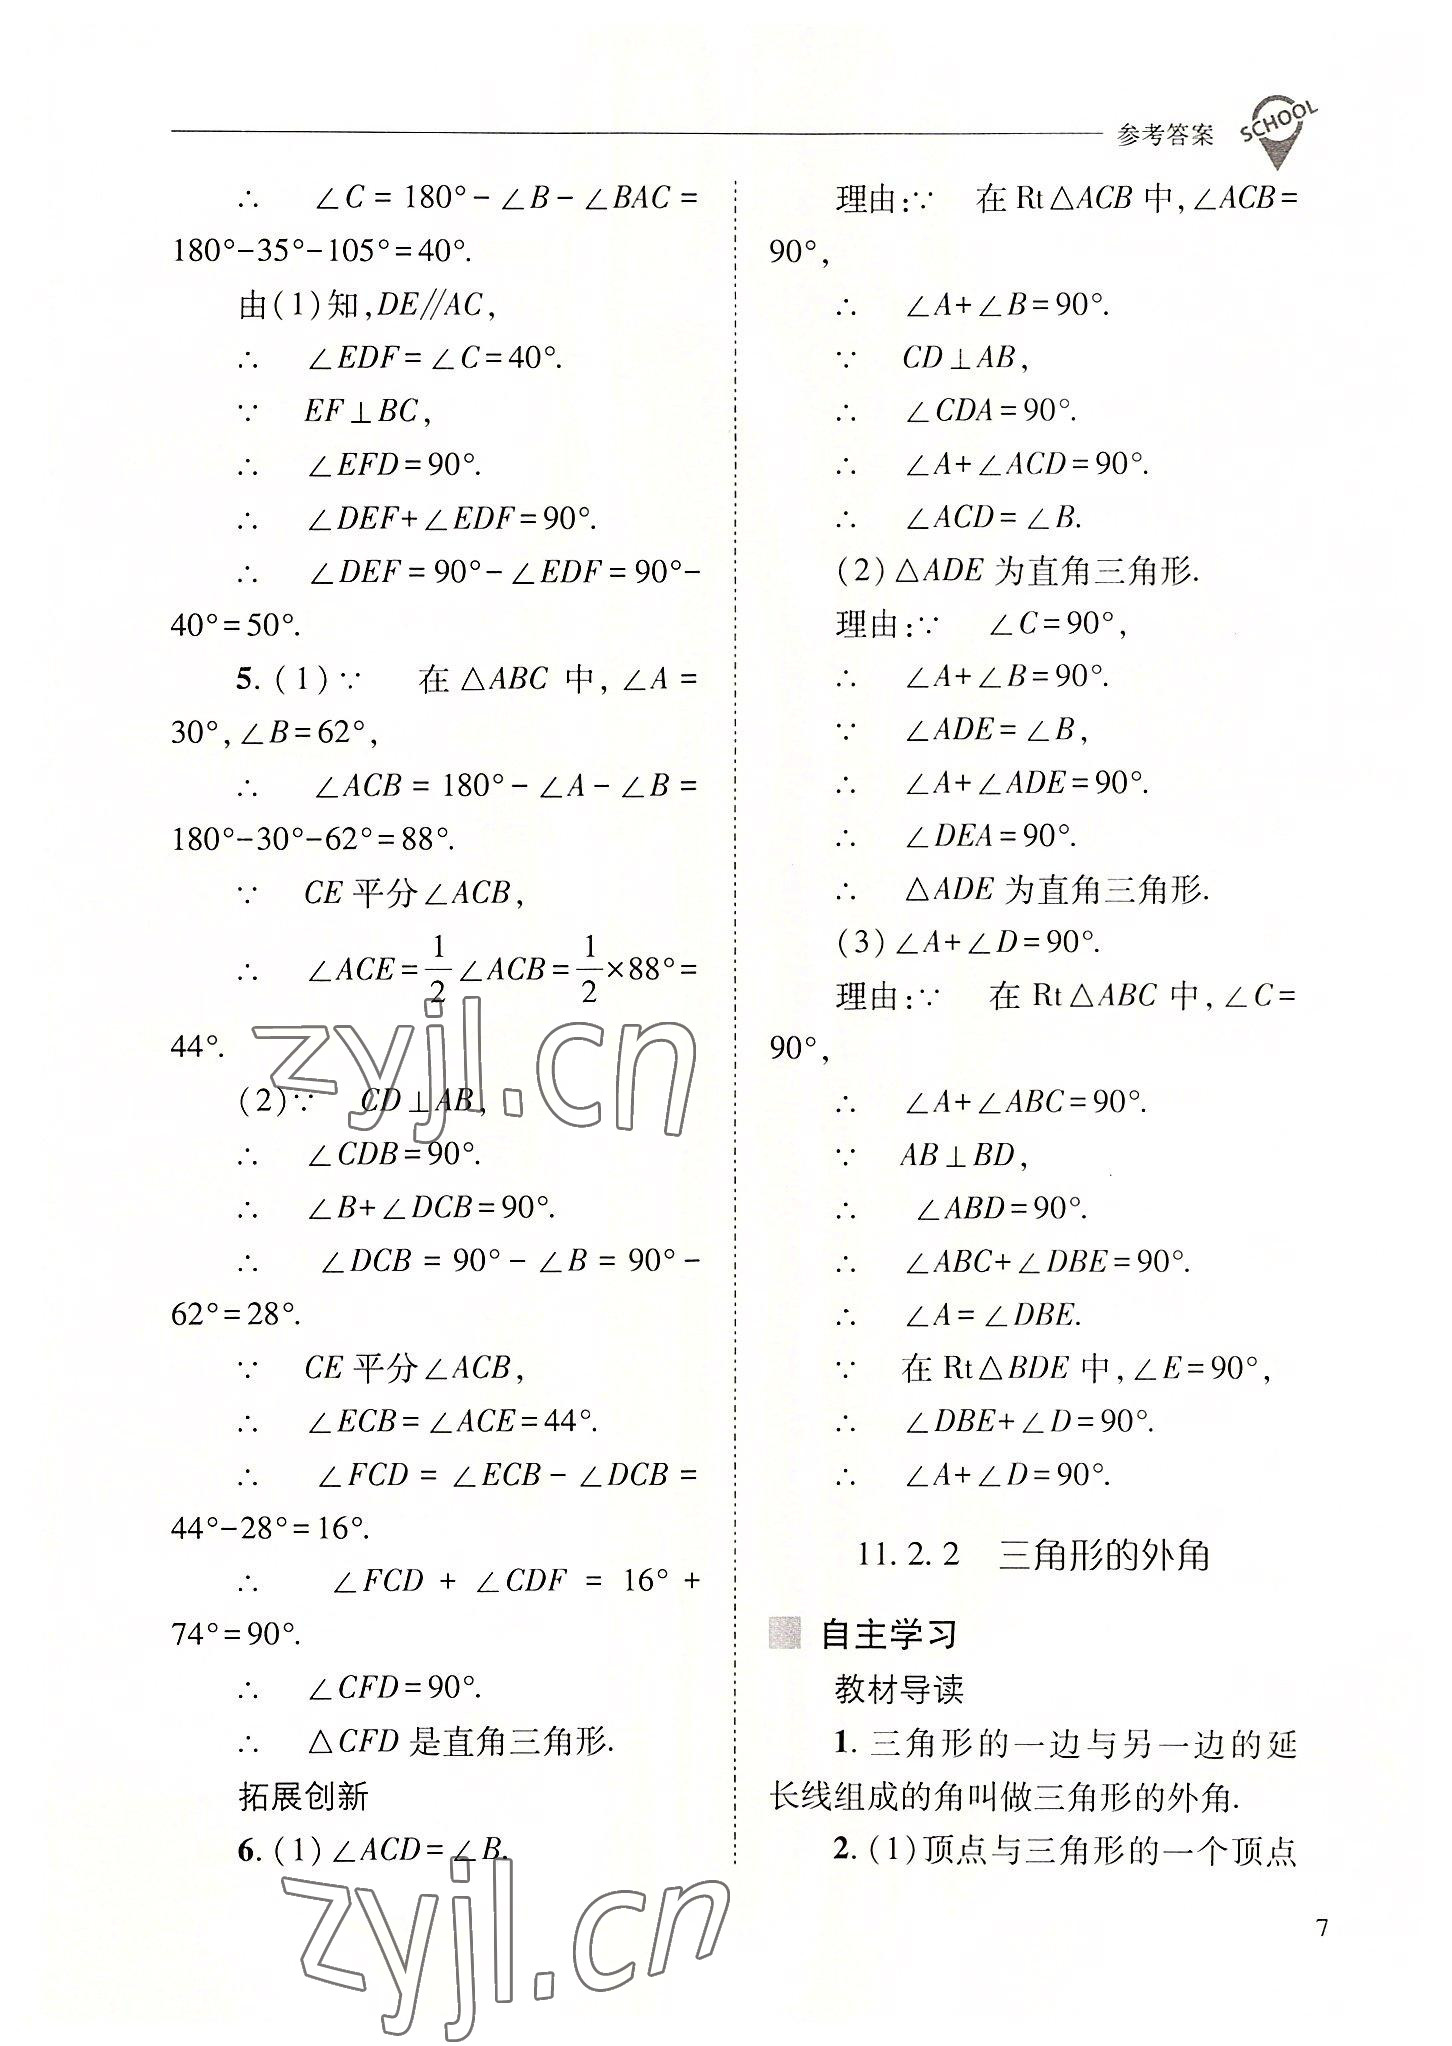 参考答案
SCHOOL
∴ ∠C=180°-∠B-∠BAC=
180°-35°-105°=40°.
由(1)知,DE∥AC,
∴ ∠EDF=∠C=40°.
∵ EF⊥BC,
∴ ∠EFD=90°.
∴ ∠DEF+∠EDF=90°.
∴ ∠DEF=90°-∠EDF=90°-
40°=50°.
5. (1)∵ 在△ABC 中,∠A=
30°,∠B=62°,
∴ ∠ACB=180°-∠A-∠B=
180°-30°-62°=88°.
∵ CE 平分∠ACB,
∴ ∠ACE=1/2∠ACB=1/2×88°=
44°.
(2)∵ CD⊥AB,
∴ ∠CDB=90°.
∴ ∠B+∠DCB=90°.
∴ ∠DCB=90°-∠B=90°-
62°=28°.
∵ CE 平分∠ACB,
∴ ∠ECB=∠ACE=44°.
∴ ∠FCD=∠ECB-∠DCB=
44°-28°=16°.
∴ ∠FCD+∠CDF=16°+
74°=90°.
∴ ∠CFD=90°.
∴ △CFD 是直角三角形.
拓展创新
6. (1)∠ACD=∠B.
理由:∵ 在 Rt△ACB 中,∠ACB=
90°,
∴ ∠A+∠B=90°.
∵ CD⊥AB,
∴ ∠CDA=90°.
∴ ∠A+∠ACD=90°.
∴ ∠ACD=∠B.
(2)△ADE 为直角三角形.
理由:∵ ∠C=90°,
∴ ∠A+∠B=90°.
∵ ∠ADE=∠B,
∴ ∠A+∠ADE=90°.
∴ ∠DEA=90°.
∴ △ADE 为直角三角形.
(3)∠A+∠D=90°.
理由:∵ 在 Rt△ABC 中,∠C=
90°,
∴ ∠A+∠ABC=90°.
∵ AB⊥BD,
∴ ∠ABD=90°.
∴ ∠ABC+∠DBE=90°.
∴ ∠A=∠DBE.
∵ 在 Rt△BDE 中,∠E=90°,
∴ ∠DBE+∠D=90°.
∴ ∠A+∠D=90°.
11.2.2 三角形的外角
自主学习
教材导读
1. 三角形的一边与另一边的延
长线组成的角叫做三角形的外角.
2. (1)顶点与三角形的一个顶点
7
zyjl.cn
zyjl.cn